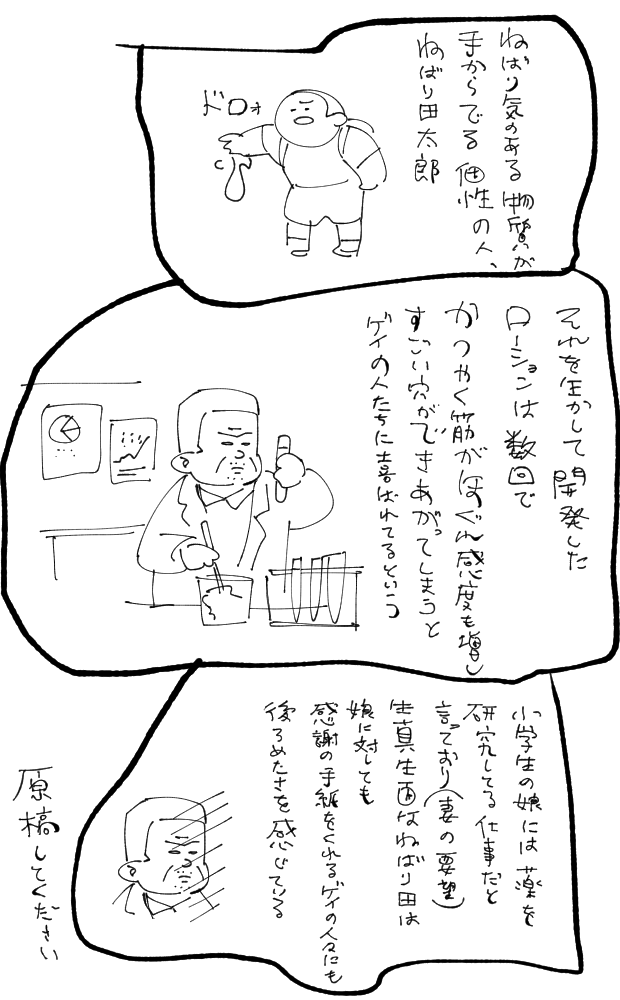 ねばり気のある物質が
手からでる個性の人、
ねばり田太郎
ドロォ
それを生かして開発した
ローションは数回で
かつやく筋がほぐれ感度も増し
すごい穴ができあがってしまうと
ゲイの人たちに喜ばれてるという
小学生の娘には薬を
研究してる仕事だと
言っており(妻の要望)
生真面目なねばり田は
娘に対しても
感謝の手紙をくれるゲイの人々にも
後ろめたさを感じている
原稿してください